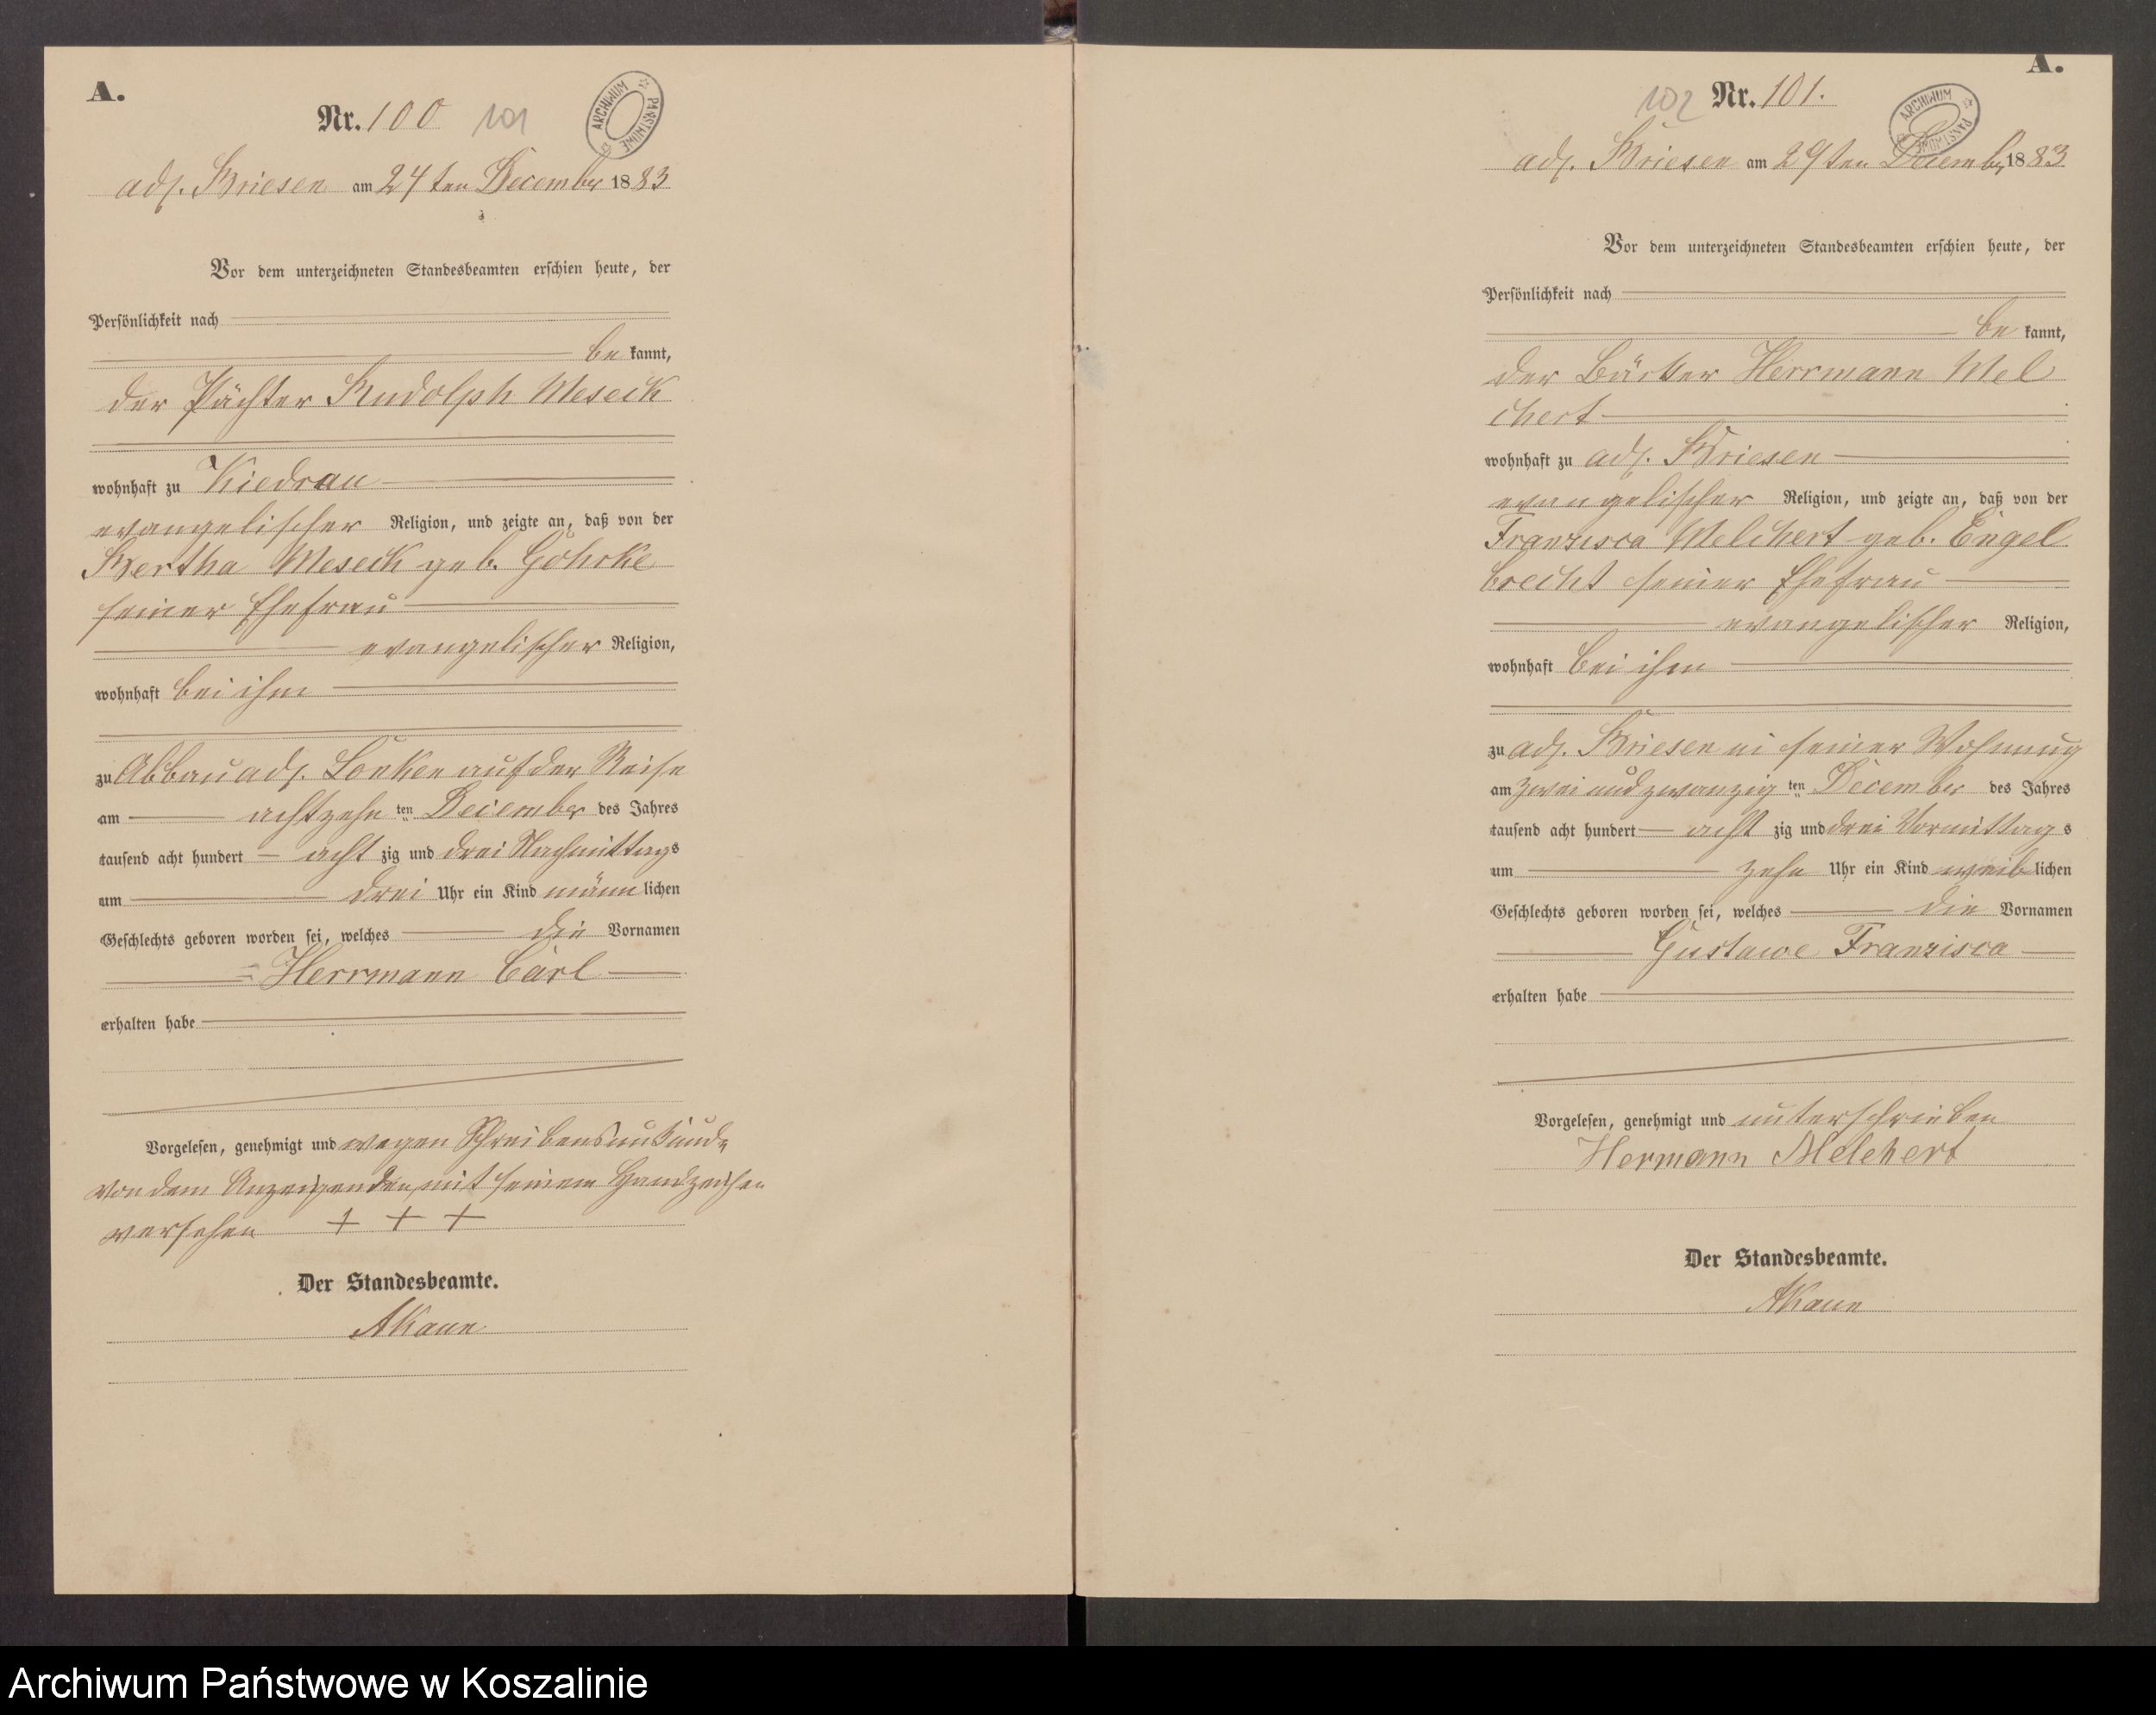 A.
Nr. 100 101
ARCHIWUM PAŃSTWOWE
adl. Briesen am 24ten December 1883
Vor dem unterzeichneten Standesbeamten erschien heute, der
Persönlichkeit nach
be kannt,
der Pächter Rudolph Meseck
wohnhaft zu Kiedrau
evangelischer Religion, und zeigte an, daß von der
Bertha Meseck geb. Göhrke
seiner Ehefrau
evangelischer Religion,
wohnhaft bei ihm
zu Abbau adl. Lonken auf der Reise
am achtzehn ten December des Jahres
tausend acht hundert acht zig und drei Nachmittags
um drei Uhr ein Kind männ lichen
Geschlechts geboren worden sei, welches die Vornamen
Herrmann Carl
erhalten habe
Vorgelesen, genehmigt und wegen Schreibensunkunde
von dem Anzeigenden mit seinem Handzeichen
versehen + + +
Der Standesbeamte.
AKaun
A.
102 Nr. 101.
ARCHIWUM PAŃSTWOWE
adl. Briesen am 29ten December 1883
Vor dem unterzeichneten Standesbeamten erschien heute, der
Persönlichkeit nach
be kannt,
der Bäcker Herrmann Mel
chert
wohnhaft zu adl. Briesen
evangelischer Religion, und zeigte an, daß von der
Franzisca Melchert geb. Engel
brecht seiner Ehefrau
evangelischer Religion,
wohnhaft bei ihm
zu adl. Briesen in seiner Wohnung
am zwei und zwanzig ten December des Jahres
tausend acht hundert acht zig und drei Vormittag s
um zehn Uhr ein Kind weib lichen
Geschlechts geboren worden sei, welches die Vornamen
Gustawe Franzisca
erhalten habe
Vorgelesen, genehmigt und unterschrieben
Hermann Melchert
Der Standesbeamte.
AKaun
Archiwum Państwowe w Koszalinie